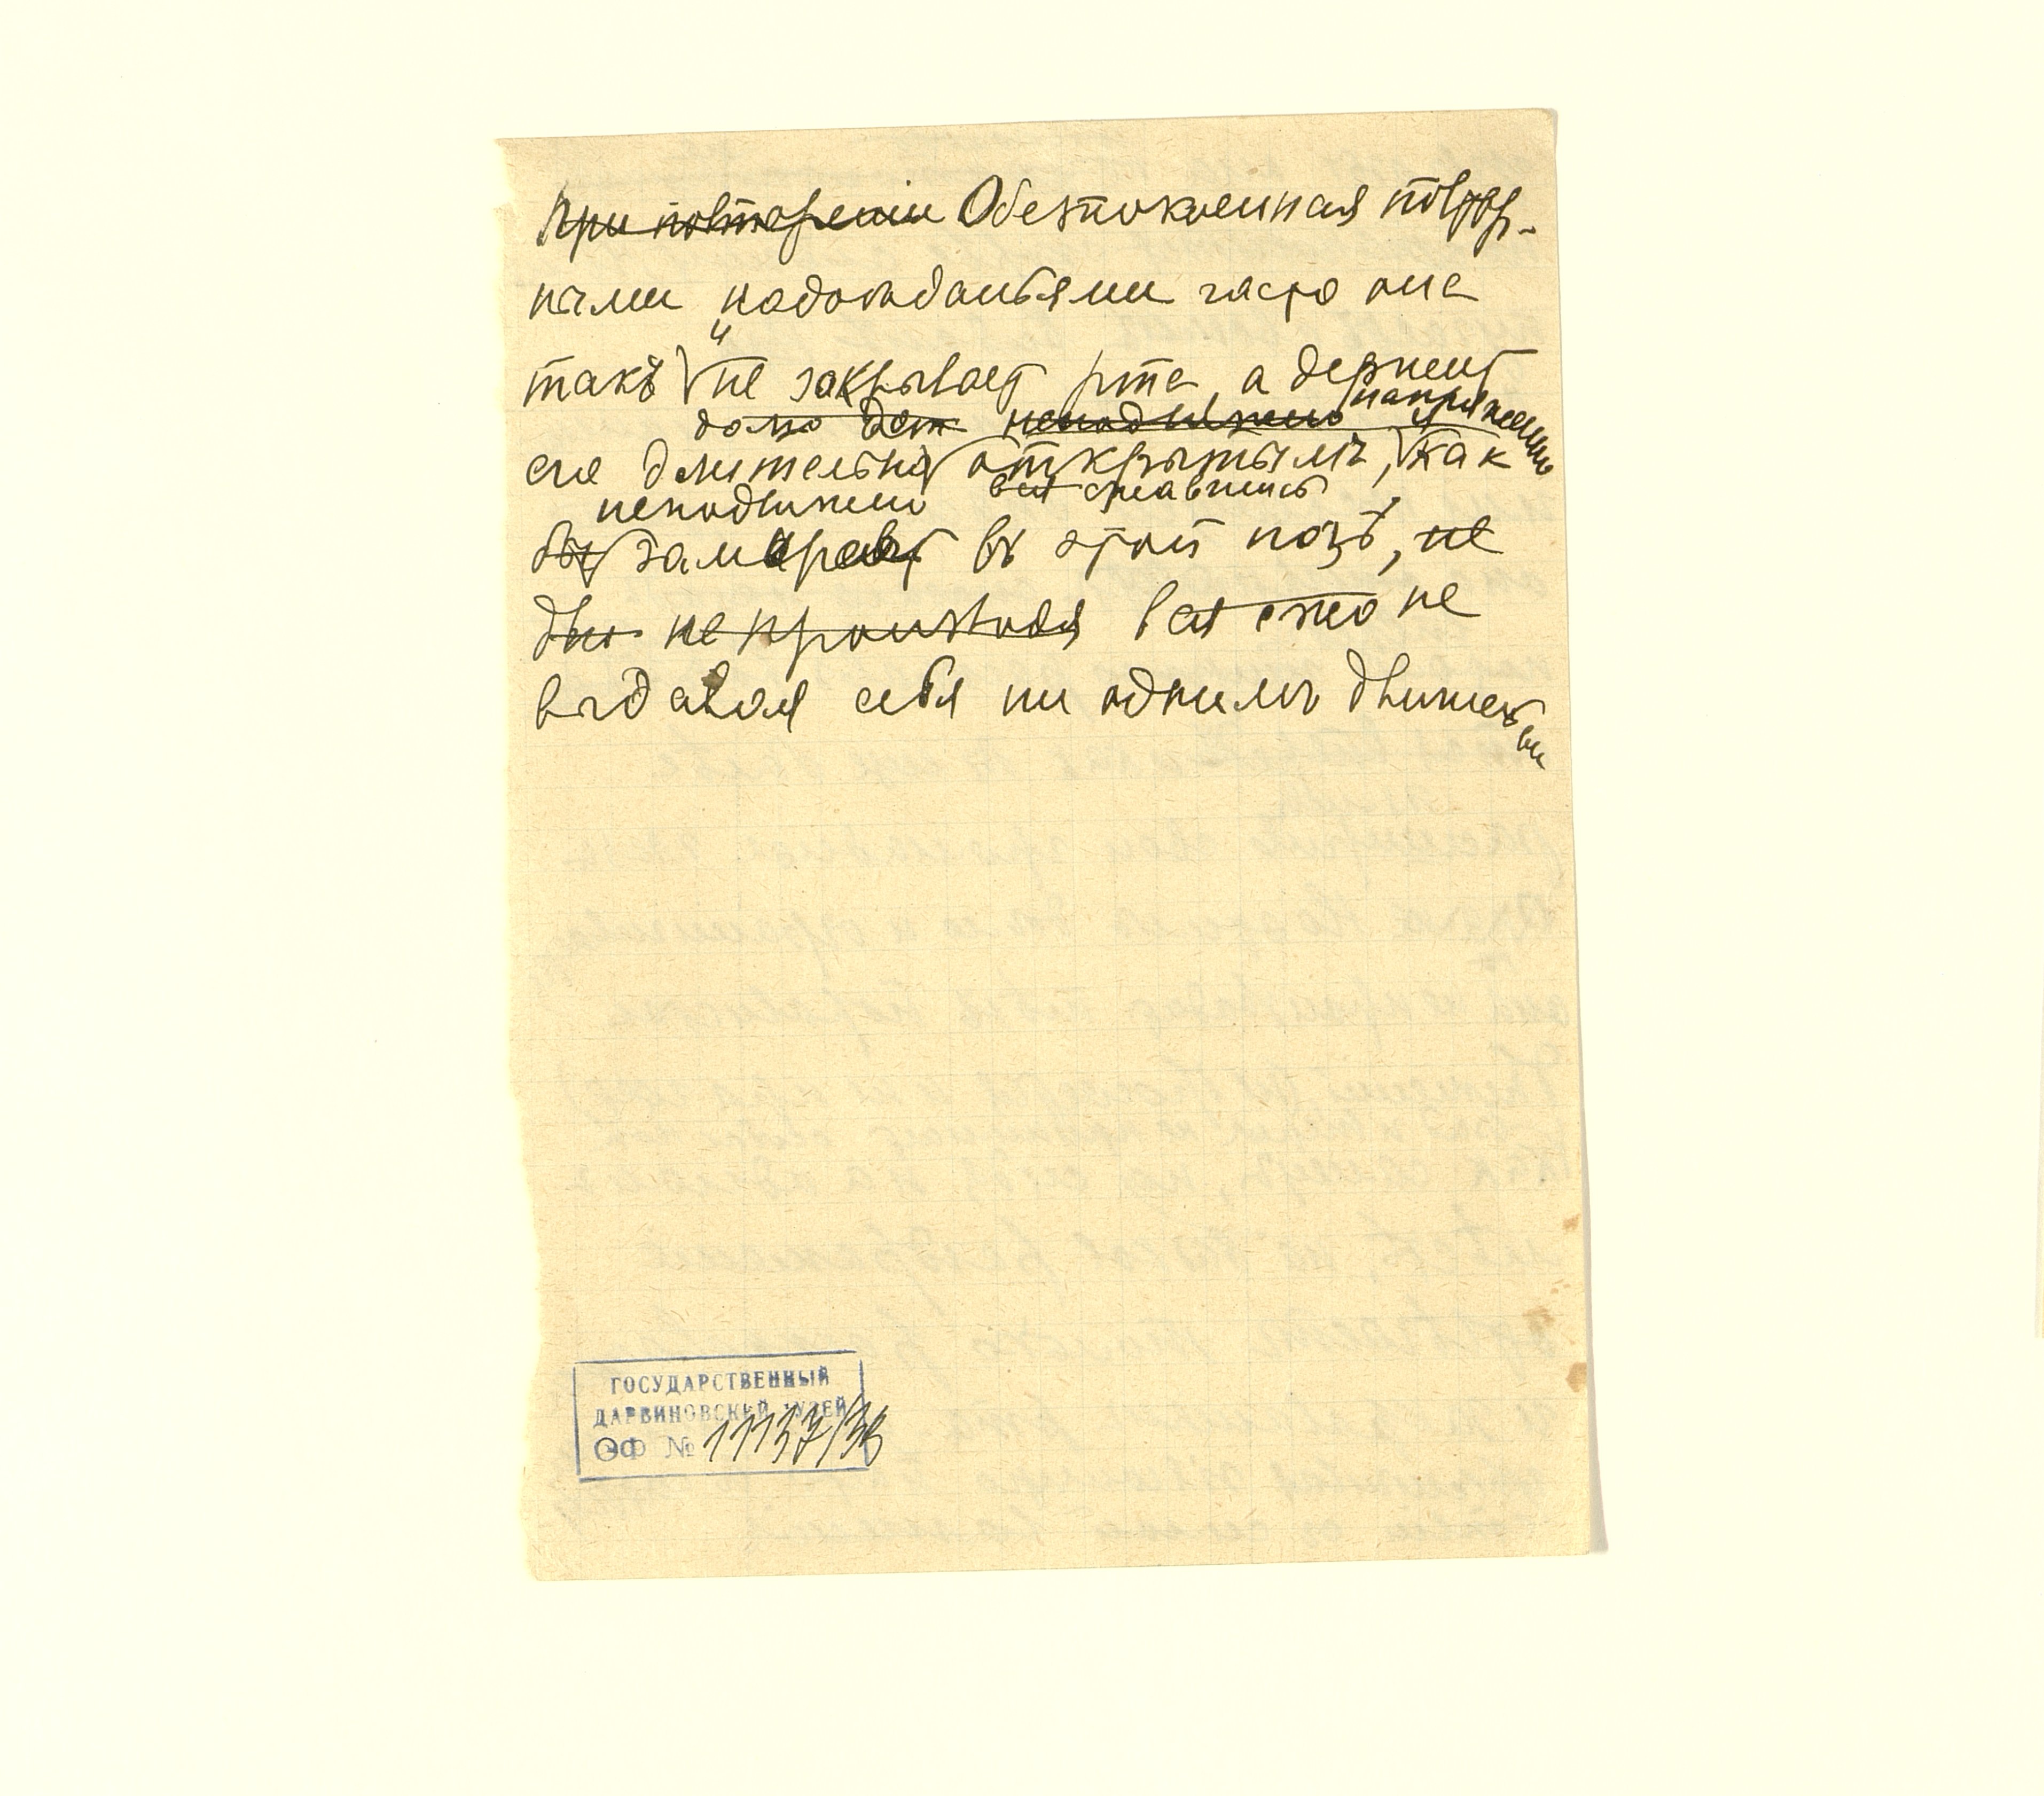 При повторении Обезпокоенная повтор-
ными надоѣданьями часто она
такъ и не закрывает рта, а держит
долго неподвижно напряженно
его длительно открытымъ, как
неподвижно вся сжавшись
бы замирает въ этой позѣ, не
дви не производя вся она не
выдавая себя ни однимъ движень
ем
ГОСУДАРСТВЕННЫЙ
ДАРВИНОВСКИЙ МУЗЕЙ
ОФ № 11137/38